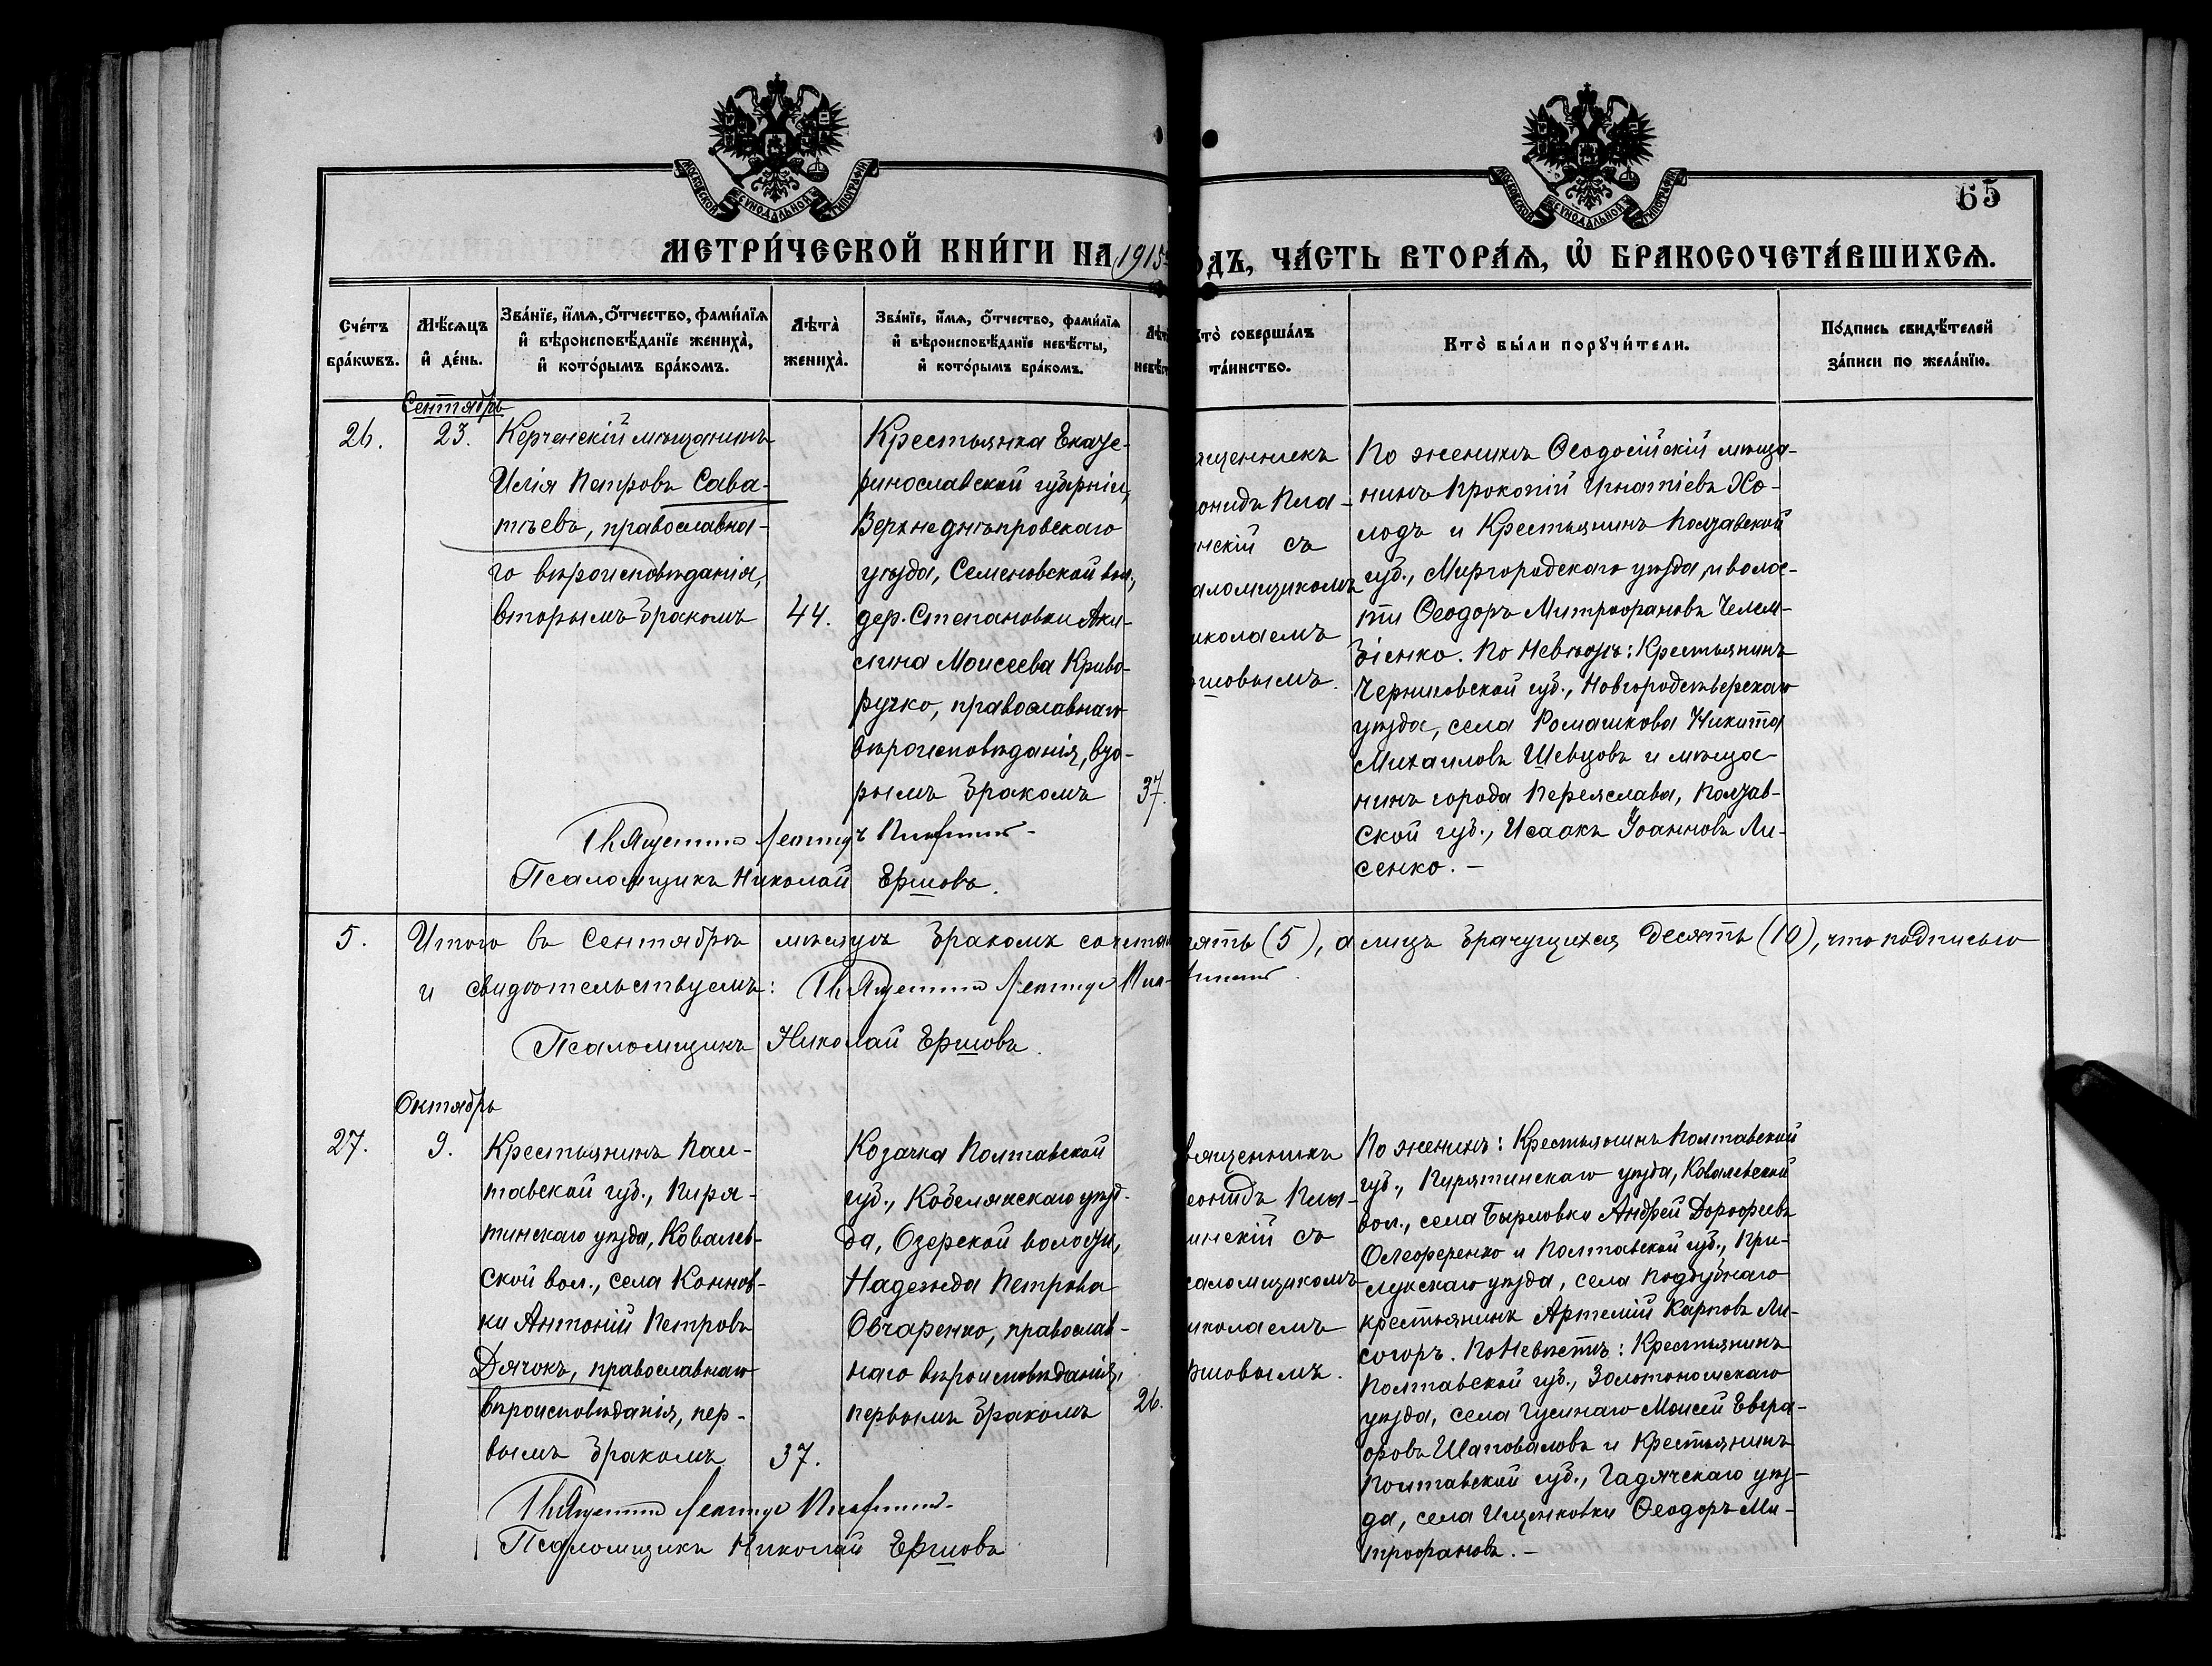 МОСКОВСКОЙ СѴНОДАЛЬНОЙ ТИПОГРАФІИ
МОСКОВСКОЙ СѴНОДАЛЬНОЙ ТИПОГРАФІИ
65
МЕТРИ́ЧЕСКОЙ КНИ́ГИ НА 1915
ОДЪ, ЧА́СТЬ ВТОРА́Ѧ, Ѽ БРАКОСОЧЕТА́ВШИХСѦ.
Сче́тъ бра́кѡвъ.
Мѣ́сѧцъ и҆ де́нь.
Зва́нїе, и҆́мѧ, ѻ҆́тчество, фами́лїѧ и҆ вѣроисповѣ́данїе жениха̀, и҆ кото́рымъ бра́комъ.
Лѣта̀ жениха̀.
Зва́нїе, и҆́мѧ, ѻ҆́тчество, фами́лїѧ и҆ вѣроисповѣ́данїе невѣ́сты, и҆ кото́рымъ бра́комъ.
Лѣт невѣс
Кто̀ соверша́лъ та́инство.
Кто̀ бы́ли порꙋчи́тели.
По́дпись свидѣ́телей за́писи по жела́нїю.
Сентябрь
26.
23.
Керченскій мѣщанинъ
Илія Петровъ Сава-
тѣевъ, православна-
го вѣроисповѣданія,
вторымъ бракомъ
44.
Крестьянка Екате-
ринославской губерніи,
Верхнеднѣпровскаго
уѣзда, Семеновской вол.,
дер. Степановки Аки-
лина Моисеева Криво-
ручко, православнаго
вѣроисповѣданія, вто-
рымъ бракомъ
37.
ященникъ
онидъ Пла-
нскій съ
аломщикомъ
иколаемъ
шовымъ.
По женихѣ Ѳеодосійскій мѣща-
нинъ Прокопій Игнатіевъ Хо-
лодъ и Крестьянинъ Полтавской
губ., Миргородскаго уѣзда, и волос-
ти Ѳеодоръ Митрофановъ Челем-
біенко. По Невѣстѣ: Крестьянинъ
Черниговской губ., Новгородсѣверскаго
уѣзда, села Ромашкова Никита
Михаиловъ Шевцовъ и мѣща-
нинъ города Переяслава, Полтав-
ской губ., Исаакъ Іоанновъ Ли-
сенко. —
Священникъ Леонидъ
Псаломщикъ Николай Ершовъ.
5.
Итого въ Сентябрѣ мѣсяцѣ бракомъ сочета
ять (5), а лицъ брачущихся десять (10), что подписью
и свидѣтельствуемъ: Священникъ Леонидъ
Псаломщикъ Николай Ершовъ.
Октябрь
27.
9.
Крестьянинъ Пол-
тавской губ., Пиря-
тинскаго уѣзда, Ковалев-
ской вол., села Коннов-
ки Антоній Петровъ
Дячокъ, православнаго
вѣроисповѣданія, пер-
вымъ бракомъ
37.
Козачка Полтавской
губ., Кобелякскаго уѣз-
да, Озерской волости,
Надежда Петрова
Овчаренко, православ-
наго вѣроисповѣданія,
первымъ бракомъ
26.
вященникъ
еонидъ Пла-
инскій съ
саломщикомъ
иколаемъ
ршовымъ.
По женихѣ: Крестьянинъ Полтавской
губ., Пирятинскаго уѣзда, Ковалевской
вол., села Бырловки Андрей Дорофеевъ
Олеференко и Полтавской губ., При-
лукскаго уѣзда, села Поддубнаго
крестьянинъ Артемій Карповъ Ли-
согоръ. По Невѣстѣ: Крестьянинъ
Полтавской губ., Золотоношскаго
уѣзда, села Гусинаго Моисей Евгра-
фовъ Шаповаловъ и Крестьянинъ
Полтавской губ., Гадячскаго уѣз-
да, села Ищенковки Ѳеодоръ Ми-
трофановъ. —
Священникъ Леонидъ
Псаломщикъ Николай Ершовъ